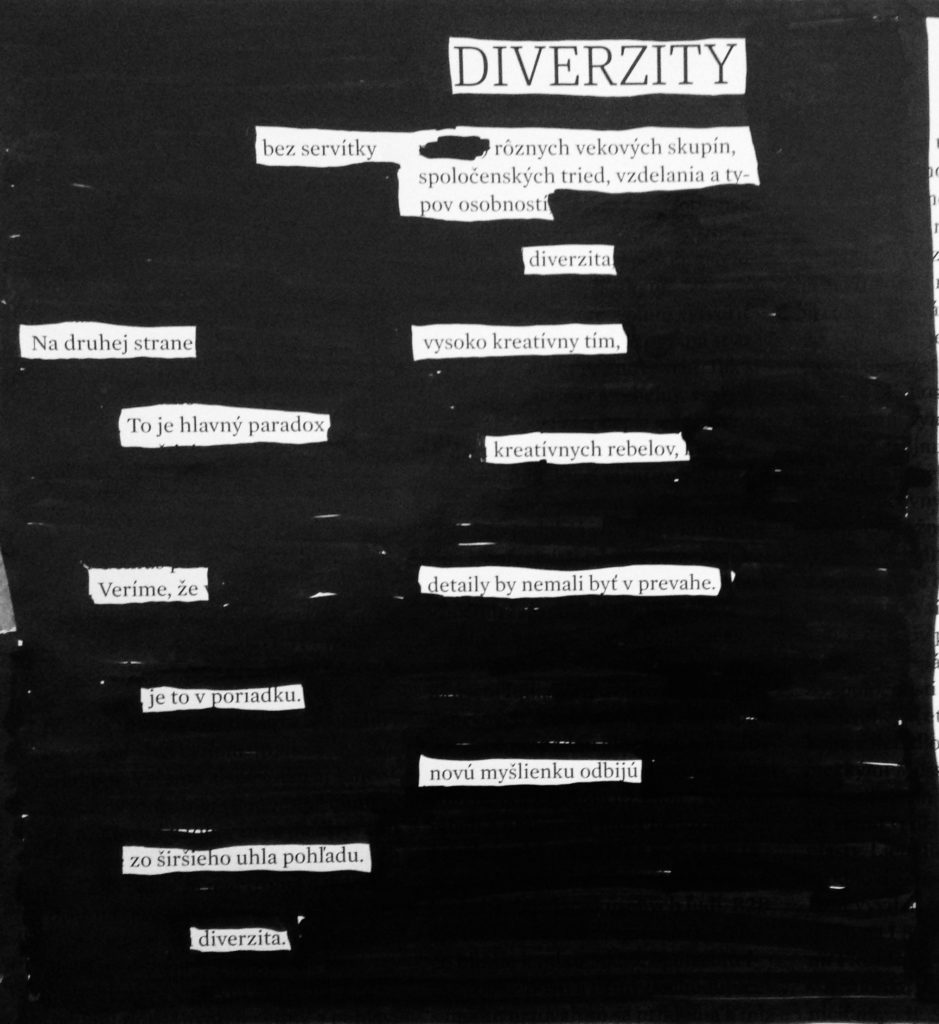 DIVERZITY
bez servítky
rôznych vekových skupín,
spoločenských tried, vzdelania a ty-
pov osobností
diverzita
Na druhej strane
vysoko kreatívny tím,
To je hlavný paradox
kreatívnych rebelov,
Veríme, že
detaily by nemali byť v prevahe.
je to v poriadku.
novú myšlienku odbijú
zo širšieho uhla pohľadu.
diverzita.